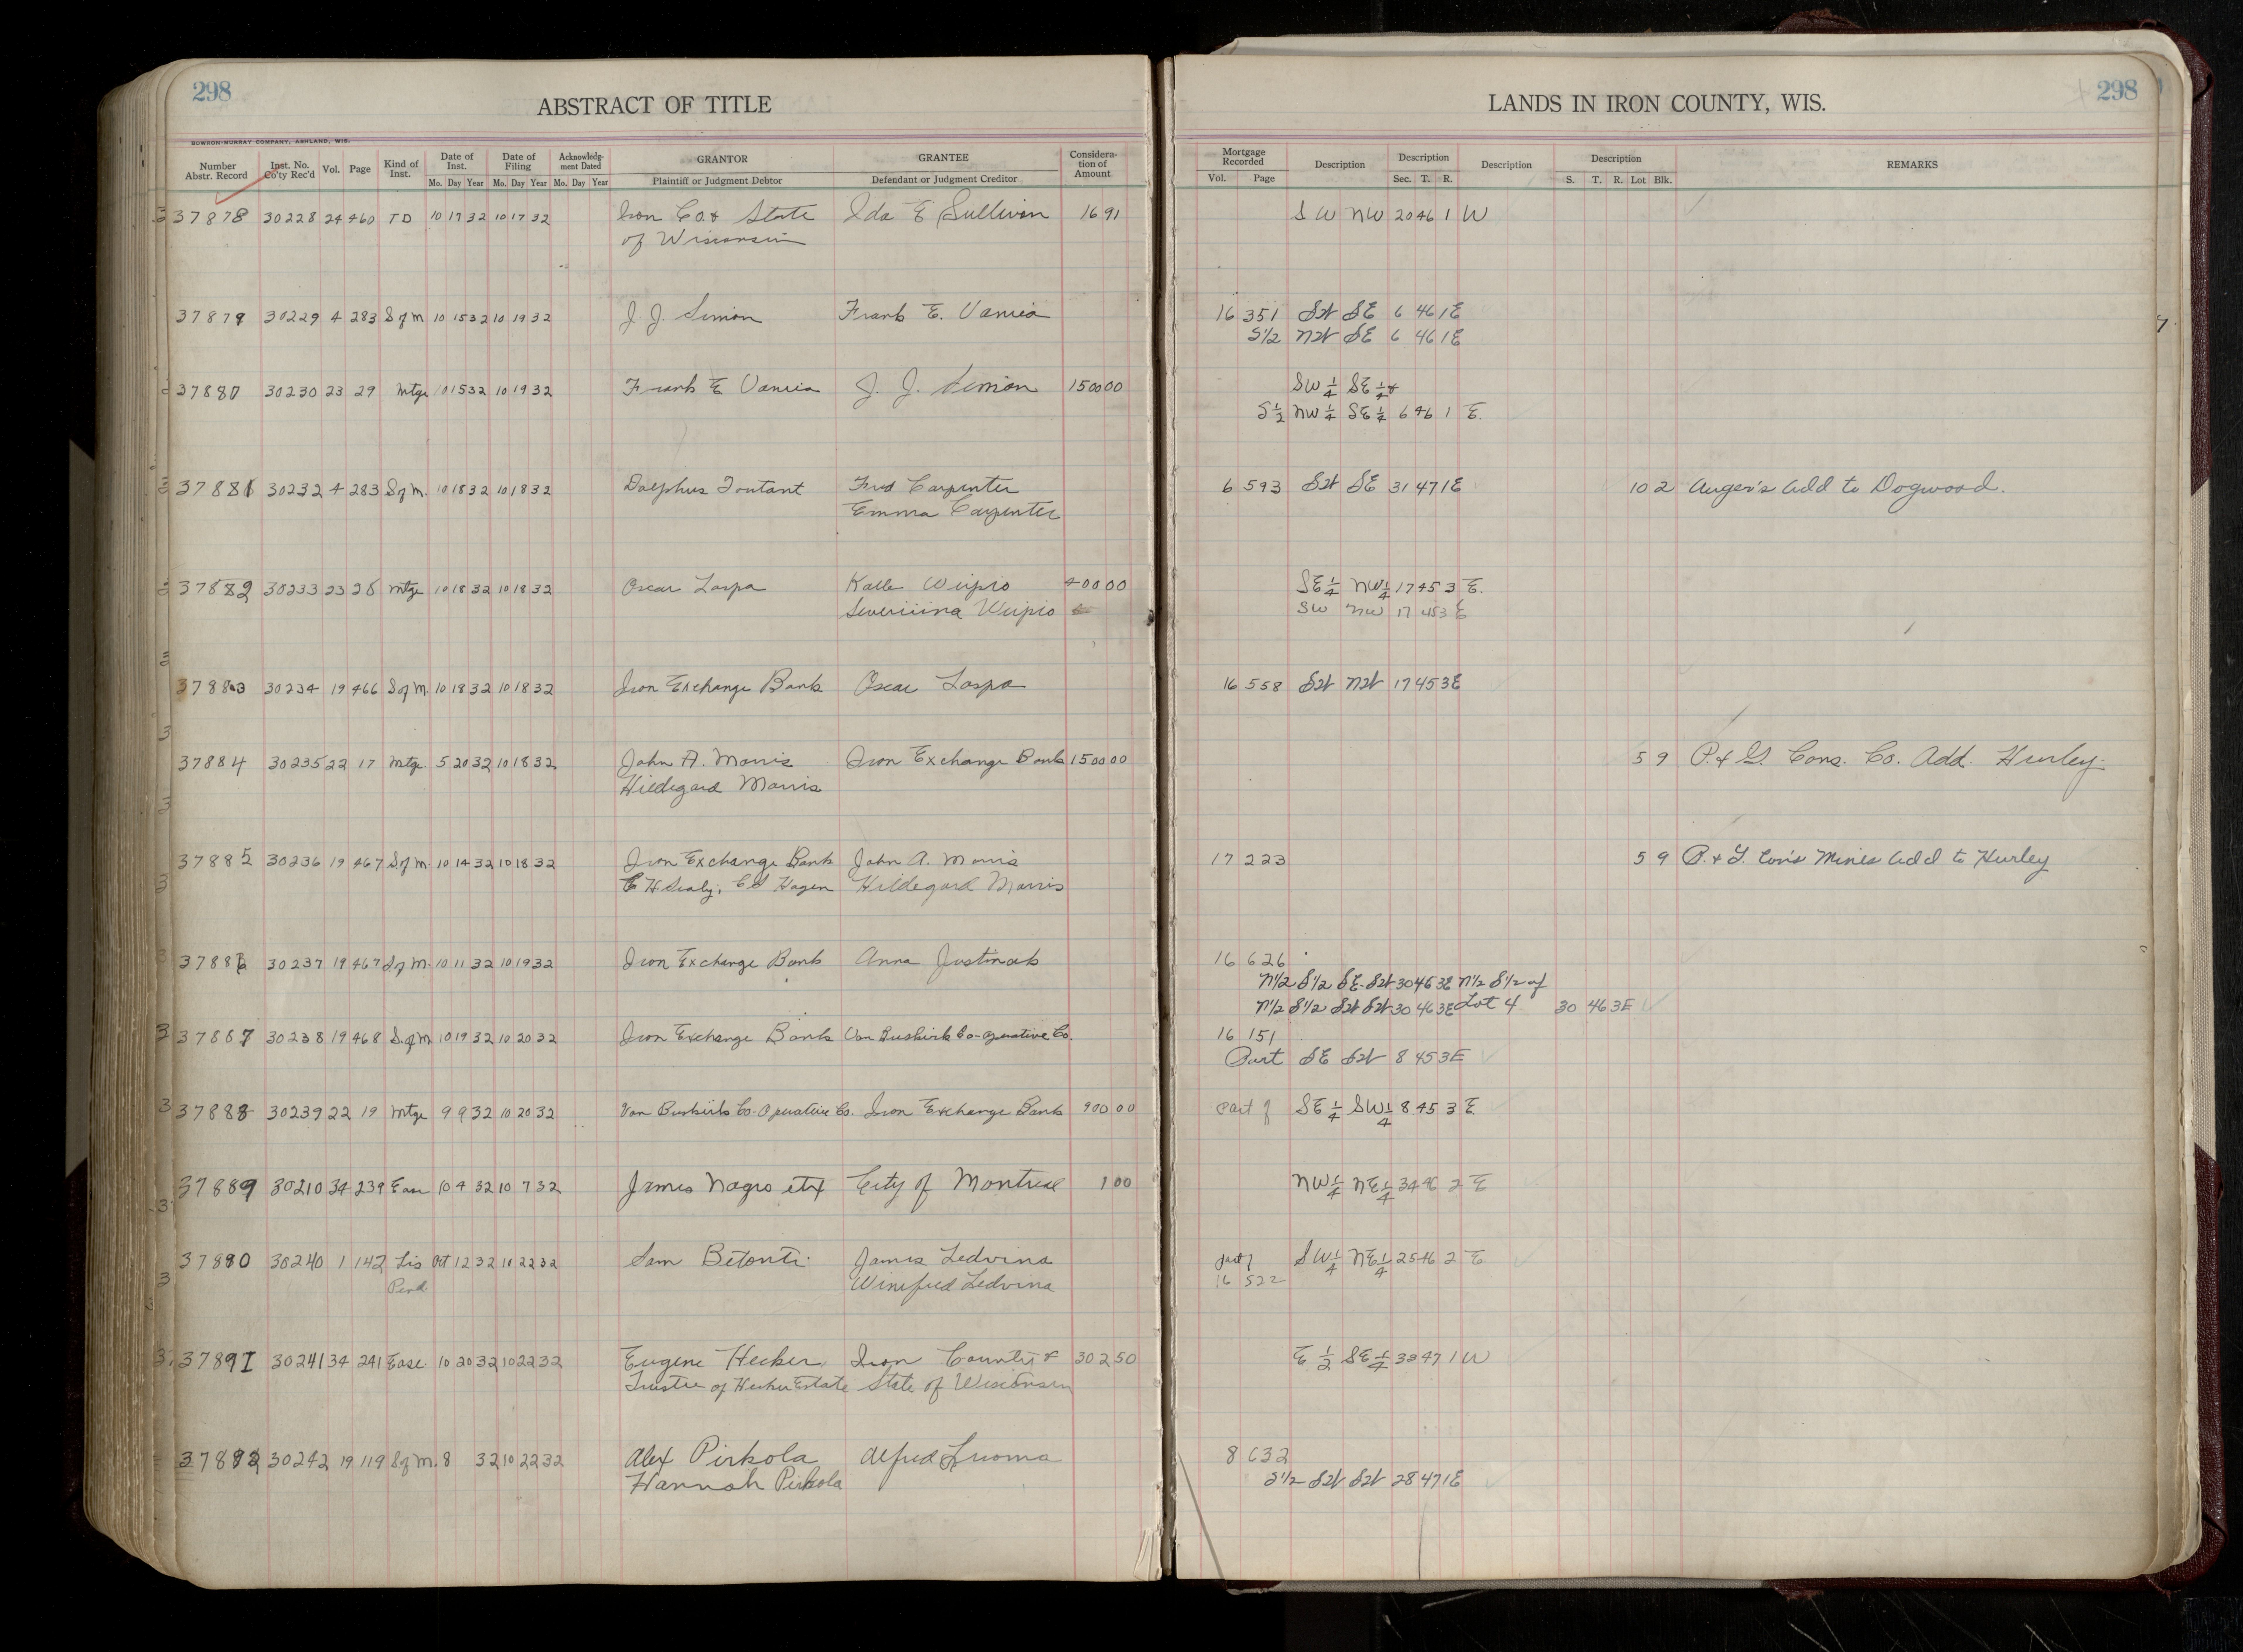 298
ABSTRACT OF TITLE
LANDS IN IRON COUNTY, WIS.
298
BOWRON-MURRAY COMPANY, ASHLAND, WIS.
Number Abstr. Record Inst. No. Co'ty Rec'd Vol. Page Kind of Inst. Date of Inst. Mo. Day Year Date of Filing Mo. Day Year Acknowledgment Dated Mo. Day Year GRANTOR Plaintiff or Judgment Debtor GRANTEE Defendant or Judgment Creditor Consideration of Amount
Mortgage Recorded Vol. Page Description Description Sec. T. R. Description Description S. T. R. Lot Blk. REMARKS
37878 30228 24 460 TD 10 17 32 10 17 32 Iron Co. & State Ida E Sullivan 16 91 SW NW 20 46 1 W
of Wisconsin
37879 30229 4 283 S of M 10 15 32 10 19 32 J. J. Simon Frank E. 16 351 SW SE 6 46 1E
S1/2 NW SE 6 46 1E
37880 30230 23 29 Mtge 10 15 32 10 19 32 Frank E J. J. Simon 1500 00 SW 1/4 SE 1/4 &
S 1/2 NW 1/4 SE 1/4 6 46 1 E.
37881 30232 4 283 S of M. 10 18 32 10 18 32 Dolphus Toutant Fred Carpenter 6 593 SW SE 31 47 1E 10 2 Auger's Add to Dogwood.
Emma Carpenter
37882 30233 23 28 Mtge 10 18 32 10 18 32 Oscar Kalle 400 00 SE 1/4 NW 1/4 17 45 3 E.
SW NW 17 45 3 E
37883 30234 19 466 S of M. 10 18 32 10 18 32 Iron Exchange Bank Oscar 16 558 SW NW 17 45 3E
37884 30235 22 17 Mtge. 5 20 32 10 18 32 John A. Morris Iron Exchange Bank 1500 00 5 9 P. & G. Cons. Co. Add. Hurley.
Hildegard Morris
37885 30236 19 467 S of M. 10 14 32 10 18 32 Iron Exchange Bank John A. Morris 17 223 5 9 Con's Mines Add to Hurley
Hagen Hildegard Morris
37886 30237 19 467 S of M. 10 11 32 10 19 32 Iron Exchange Bank Anna Justinak 16 626
N1/2 S1/2 SE SW 30 46 3E N1/2 S1/2 of
N1/2 S1/2 SW SW 30 46 3E Lot 4 30 46 3E
37887 30238 19 468 S. of M 10 19 32 10 20 32 Iron Exchange Bank Van Buskirk Co-operative Co. 16 151
Part SE SW 8 45 3E
37888 30239 22 19 Mtge 9 9 32 10 20 32 Van Buskirk Co-operative Co. Iron Exchange Bank 900 00 Part of SE 1/4 SW 1/4 8 45 3 E.
37889 30210 34 239 Ease 10 4 32 10 7 32 James Nagro etx City of Montreal 1 00 NW 1/4 NE 1/4 34 46 2 E
37890 30240 1 142 Lis Oct 12 32 10 22 32 Sam Betonti James Ledvina Part of SW 1/4 NE 1/4 25 46 2 E
Pend. Winifred Ledvina 16 522
37891 30241 34 241 Ease. 10 20 32 10 22 32 Eugene Hecker, Iron County & 302 50 E 1/2 SE 1/4 33 47 1 W
Trustee of Hecker Estate State of Wisconsin
37892 30242 19 119 S of M. 8 32 10 22 32 Alex Pirkola Alfred Luoma 8 632
Hannah Pirkola S1/2 SW SW 28 47 1E